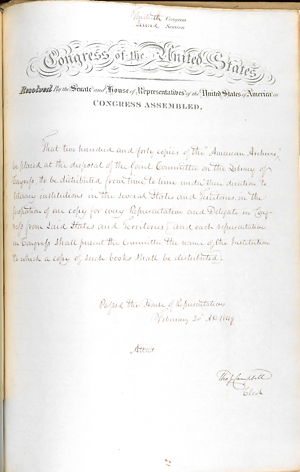 Thirtieth Congress
Second Session
Congress of the United States
Resolved By the Senate and House of Representatives of the United States of America in
CONGRESS ASSEMBLED,
That two hundred and forty copies of the "American Archives,"
be placed at the disposal of the Joint Committee on the Library of
Congress, to be distributed from time to time under their direction to
literary institutions in the several States and Territories, in the
proportion of one copy for every Representation and Delegate in Con-
gress from said States and Territories; and each representation
in Congress shall present the Committee the name of the Institution
to which a copy of such books shall be distributed.
Passed the House of Representatives
February 20 AD 1849
Attest
Tho J Campbell
Clerk